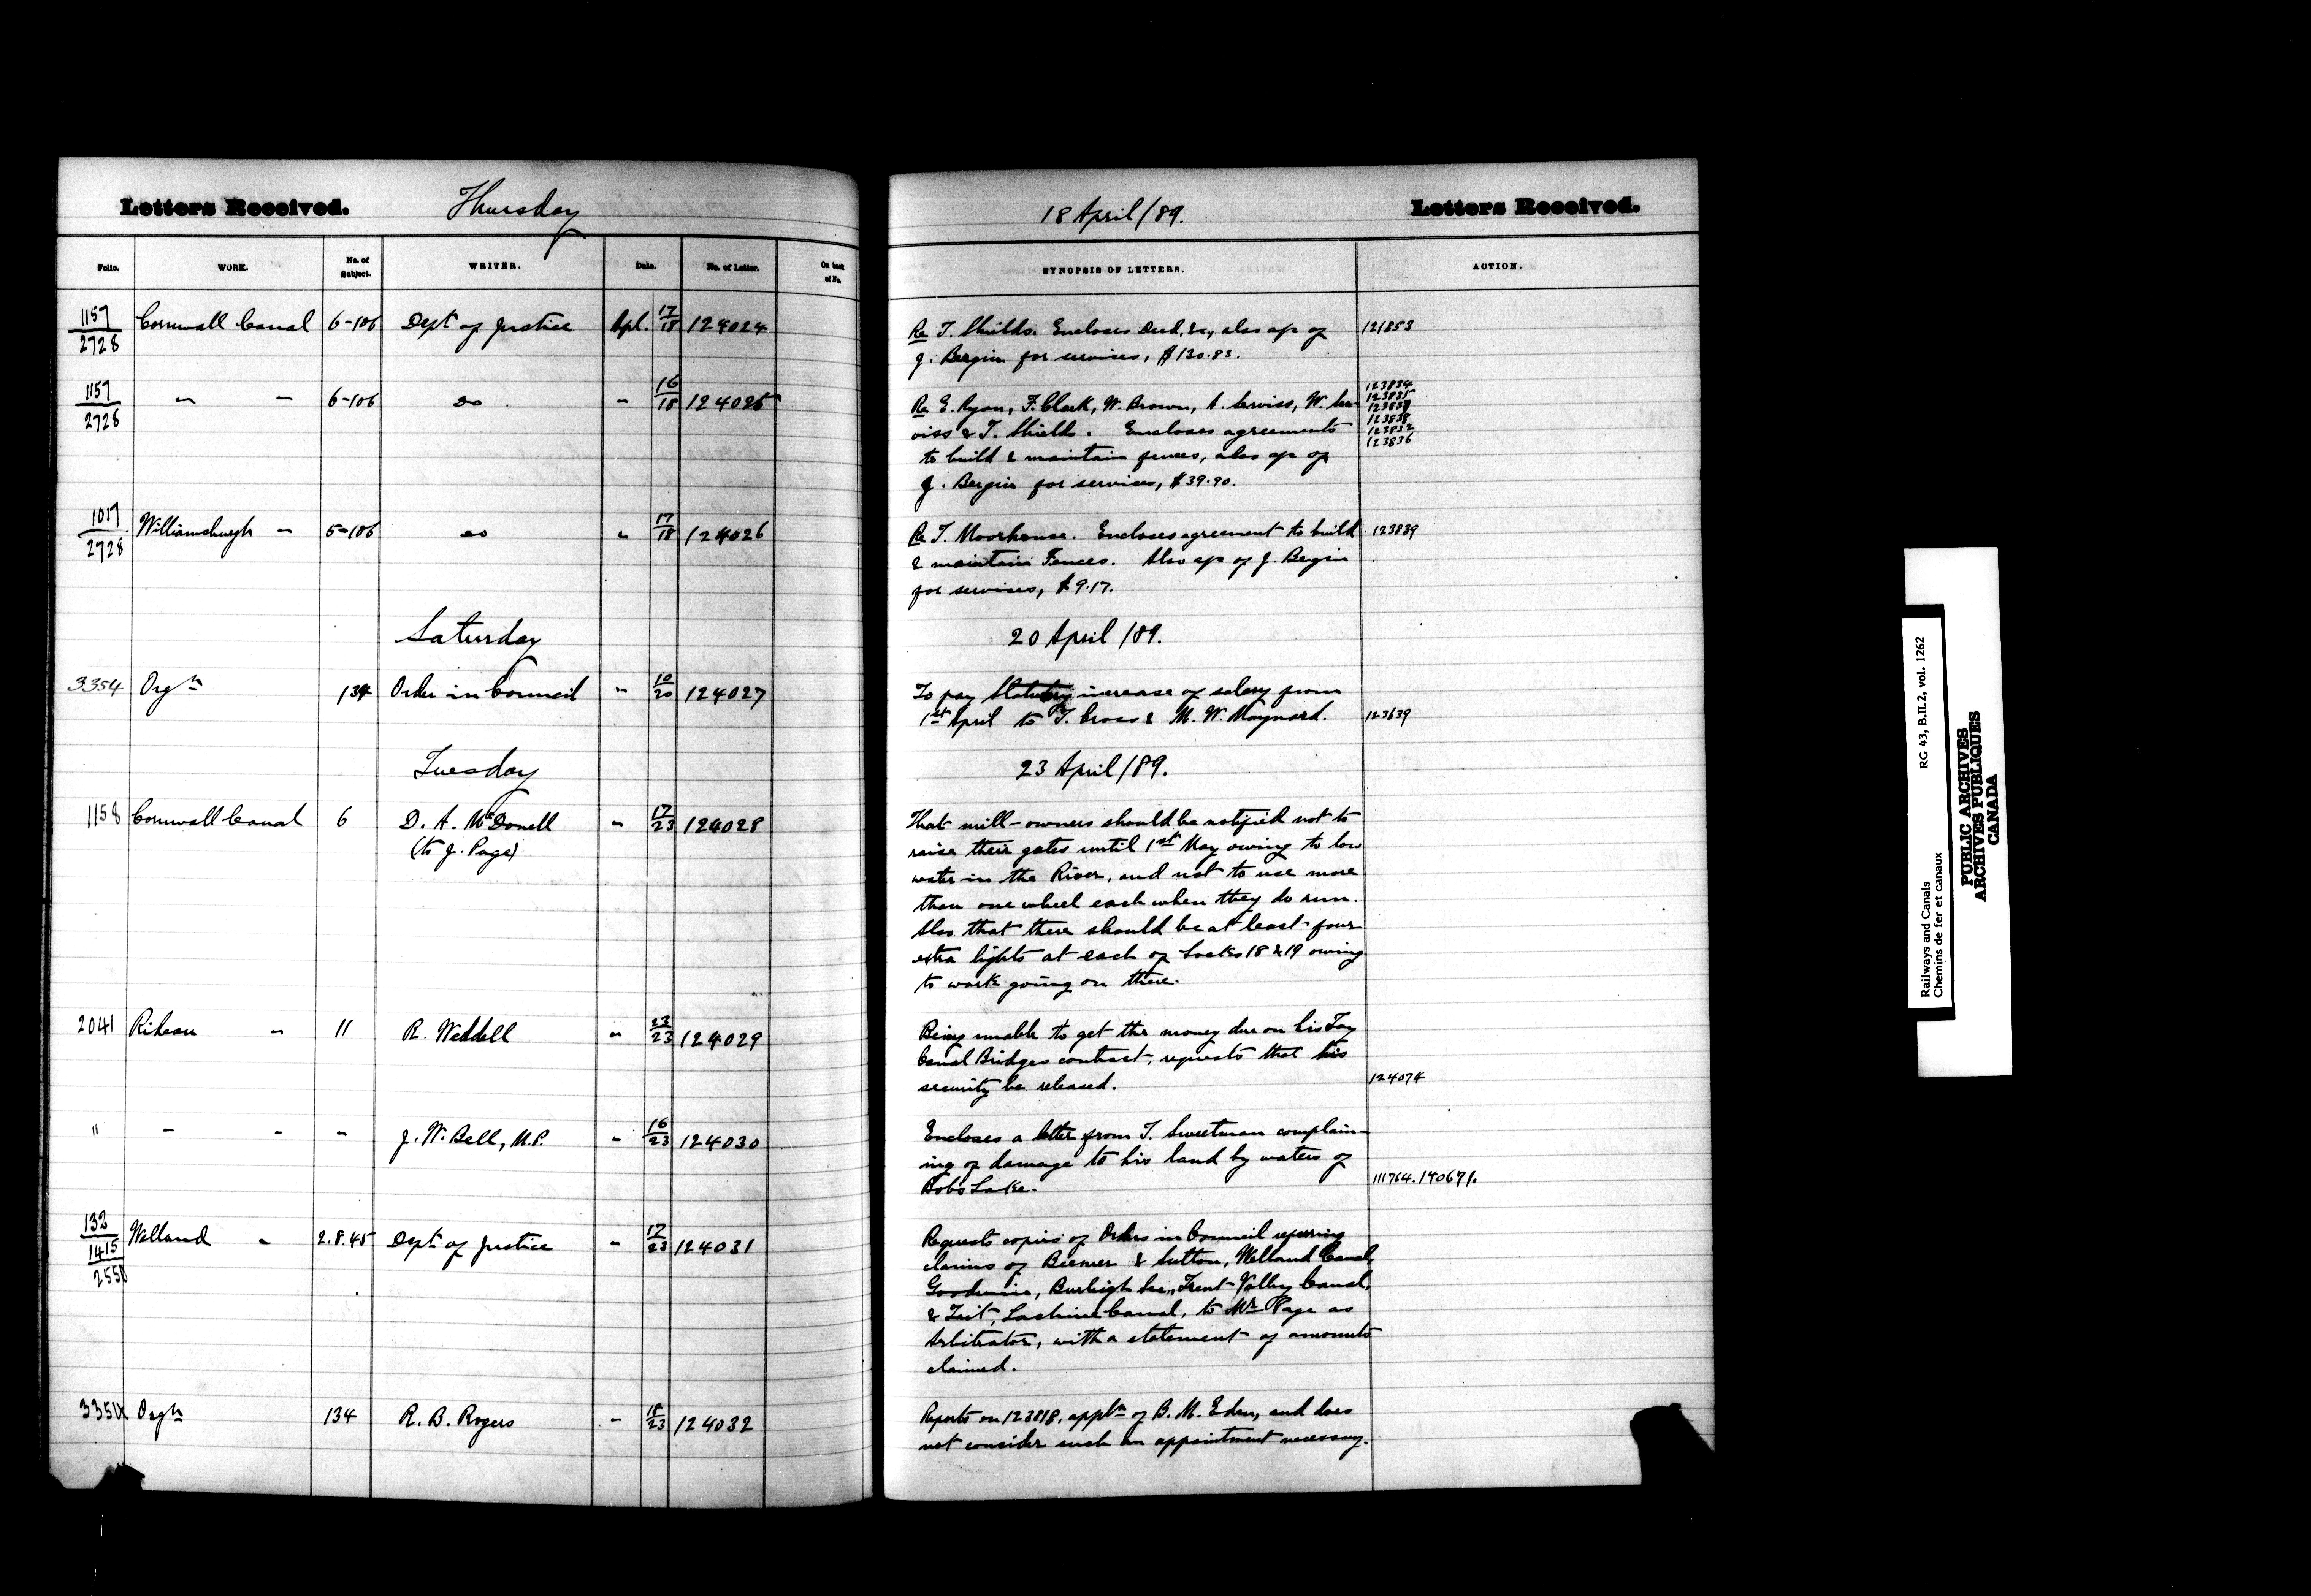 Letters Received. Thursday
18 April/89. Letters Received.
Folio. WORK. No. of Subject. WRITER. Date. No. of Letter. On back of No.
SYNOPSIS OF LETTERS. ACTION.
1157/2728 Cornwall Canal 6-106 Dept of Justice Apl. 17/18 124024
Re T. Shields. Encloses Deed, &c, also a/c of 121853
J. Bergin for services, $130.83.
1157/2728 " " 6-106 do " 16/18 124025
123834
123835
123837
123838
123832
123836
Re E. Ryan, F. Clark, W. Brown, A. Serviss, W. Ser-
viss & T. Shields. Encloses agreements
to build & maintain fences, also a/c of
J. Bergin for services, $39.90.
1017/2728 Williamsburgh " 5-106 do " 17/18 124026
Re T. Moorhouse. Encloses agreement to build 123839
& maintain Fences. Also a/c of J. Bergin
for services, $9.17.
Saturday
20 April/89.
3354 Orgn 134 Order in Council " 10/20 124027
To pay Statutory increase of salary from
1st April to T. Cross & M. W. Maynard. 123639
Tuesday
23 April/89.
1158 Cornwall Canal 6 D. A. McDonell " 17/23 124028
(to J. Page)
That mill-owners should be notified not to
raise their gates until 1st May owing to low
water in the River, and not to use more
than one wheel each when they do run.
Also that there should be at least four
extra lights at each of Locks 18 & 19 owing
to work going on there.
2041 Rideau " 11 R. Weddell " 23/23 124029
Being unable to get the money due on his Tay
Canal Bridges contract, requests that his
security be released. 124074
" " " " J. W. Bell, M.P. " 16/23 124030
Encloses a letter from T. Sweetman complain-
ing of damage to his land by waters of
Bobs Lake. 111764. 140671.
132/1415/2558 Welland " 2.8.45 Dept of Justice " 17/23 124031
Requests copies of Orders in Council referring
claims of Beemer & Sutton, Welland Canal,
Goodwin, Burleigh Sec., Trent Valley Canal,
& Tait, Lachine Canal, to Mr Page as
Arbitrator, with a statement of amounts
claimed.
3354 Orgn 134 R. B. Rogers " 18/23 124032
Reports on 123818, appln of B. M. Eden, and does
not consider such an appointment necessary.
Railways and Canals RG 43, B.II.2, vol. 1262
Chemins de fer et canaux
PUBLIC ARCHIVES
ARCHIVES PUBLIQUES
CANADA